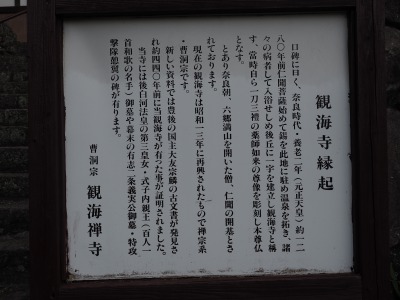 観海寺縁起
口碑に曰く、奈良時代・養老二年(元正天皇)約一二
八〇年前仁聞菩薩始めて錫を此地に駐め温泉を拓き、諸
々の病者して入浴せしめ後丘に一宇を建立し観海寺と称
す、當時自ら一刀三禮の薬師如来の尊像を彫刻し本尊仏
となす。
とあり奈良朝、六郷満山を開いた僧、仁聞の開基とさ
れております。
現在の観海寺は昭和一三年に再興されたもので禅宗系
・曹洞宗です。
新しい資料では豊後の国主大友宗麟の古文書が発見さ
れ約四四〇年前に当観海寺が有った事が証明されました。
当寺には後白河法皇の第三皇女・式子内親王(百人一
首和歌の名手)御墓や幕末の有志二条義実公御墓・特攻
撃隊慰霊の碑が有ります。
曹洞宗 観海禅寺